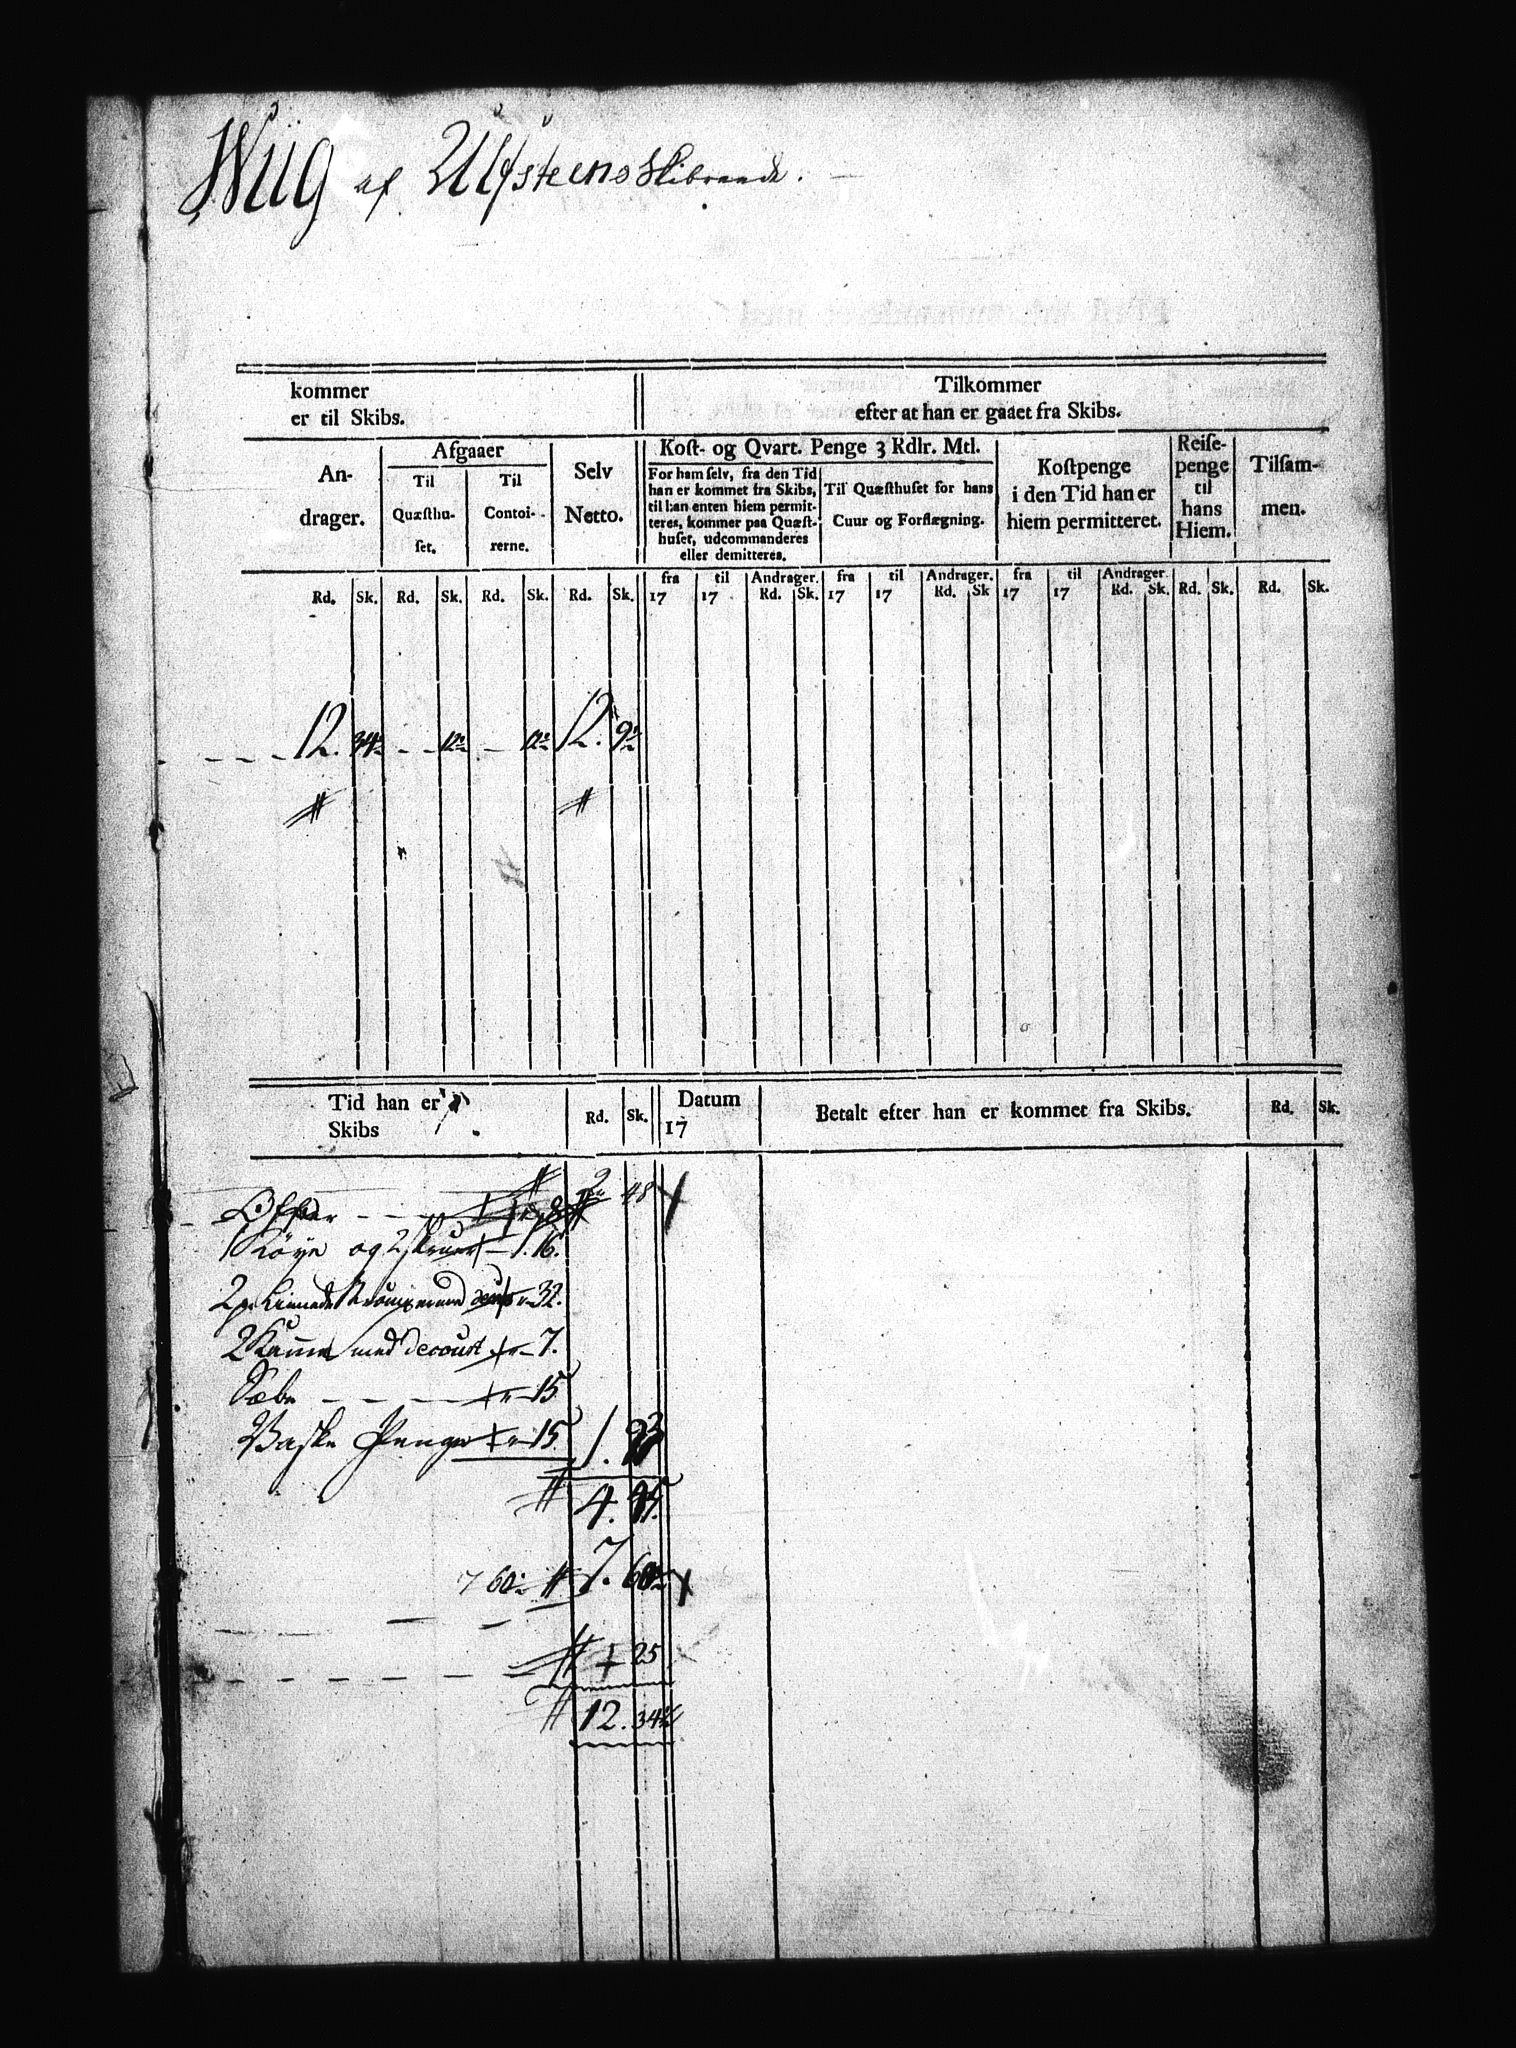 Wiig af Ulfsteens Skibreede.
kommer
er til Skibs.
Tilkommer
efter at han er gaaet fra Skibs.
An-
drager.
Afgaaer
Til
Quæsthu-
set.
Til
Contoi-
rerne.
Selv
Netto.
Kost- og Qvart. Penge 3 Rdlr. Mtl.
For ham selv, fra den Tid
han er kommet fra Skibs,
til han enten hiem permit-
teres, kommer paa Quæst-
huset, udcommanderes
eller demitteres.
Til Quæsthuset for hans
Cuur og Forflægning.
Kostpenge
i den Tid han er
hiem permitteret.
Reise-
penge
til
hans
Hiem.
Tilsam-
men.
fra til Andrager. fra til Andrager. fra til Andrager
Rd. Sk. Rd. Sk. Rd. Sk. Rd. Sk. 17 17 Rd. Sk. 17 17 Rd. Sk 17 17 Rd. Sk. Rd. Sk. Rd. Sk.
12. 34 12 12 12. 9
Tid han er
Skibs
Rd. Sk.
Datum
17
Betalt efter han er kommet fra Skibs.
Rd. Sk.
48
1 Køye og 2 1. 16.
2 pr 32.
2 Kamme med decourt 7.
Sæbe 15
Vaske Penge 15 1.
4.
7 60 7. 60
25
12. 34